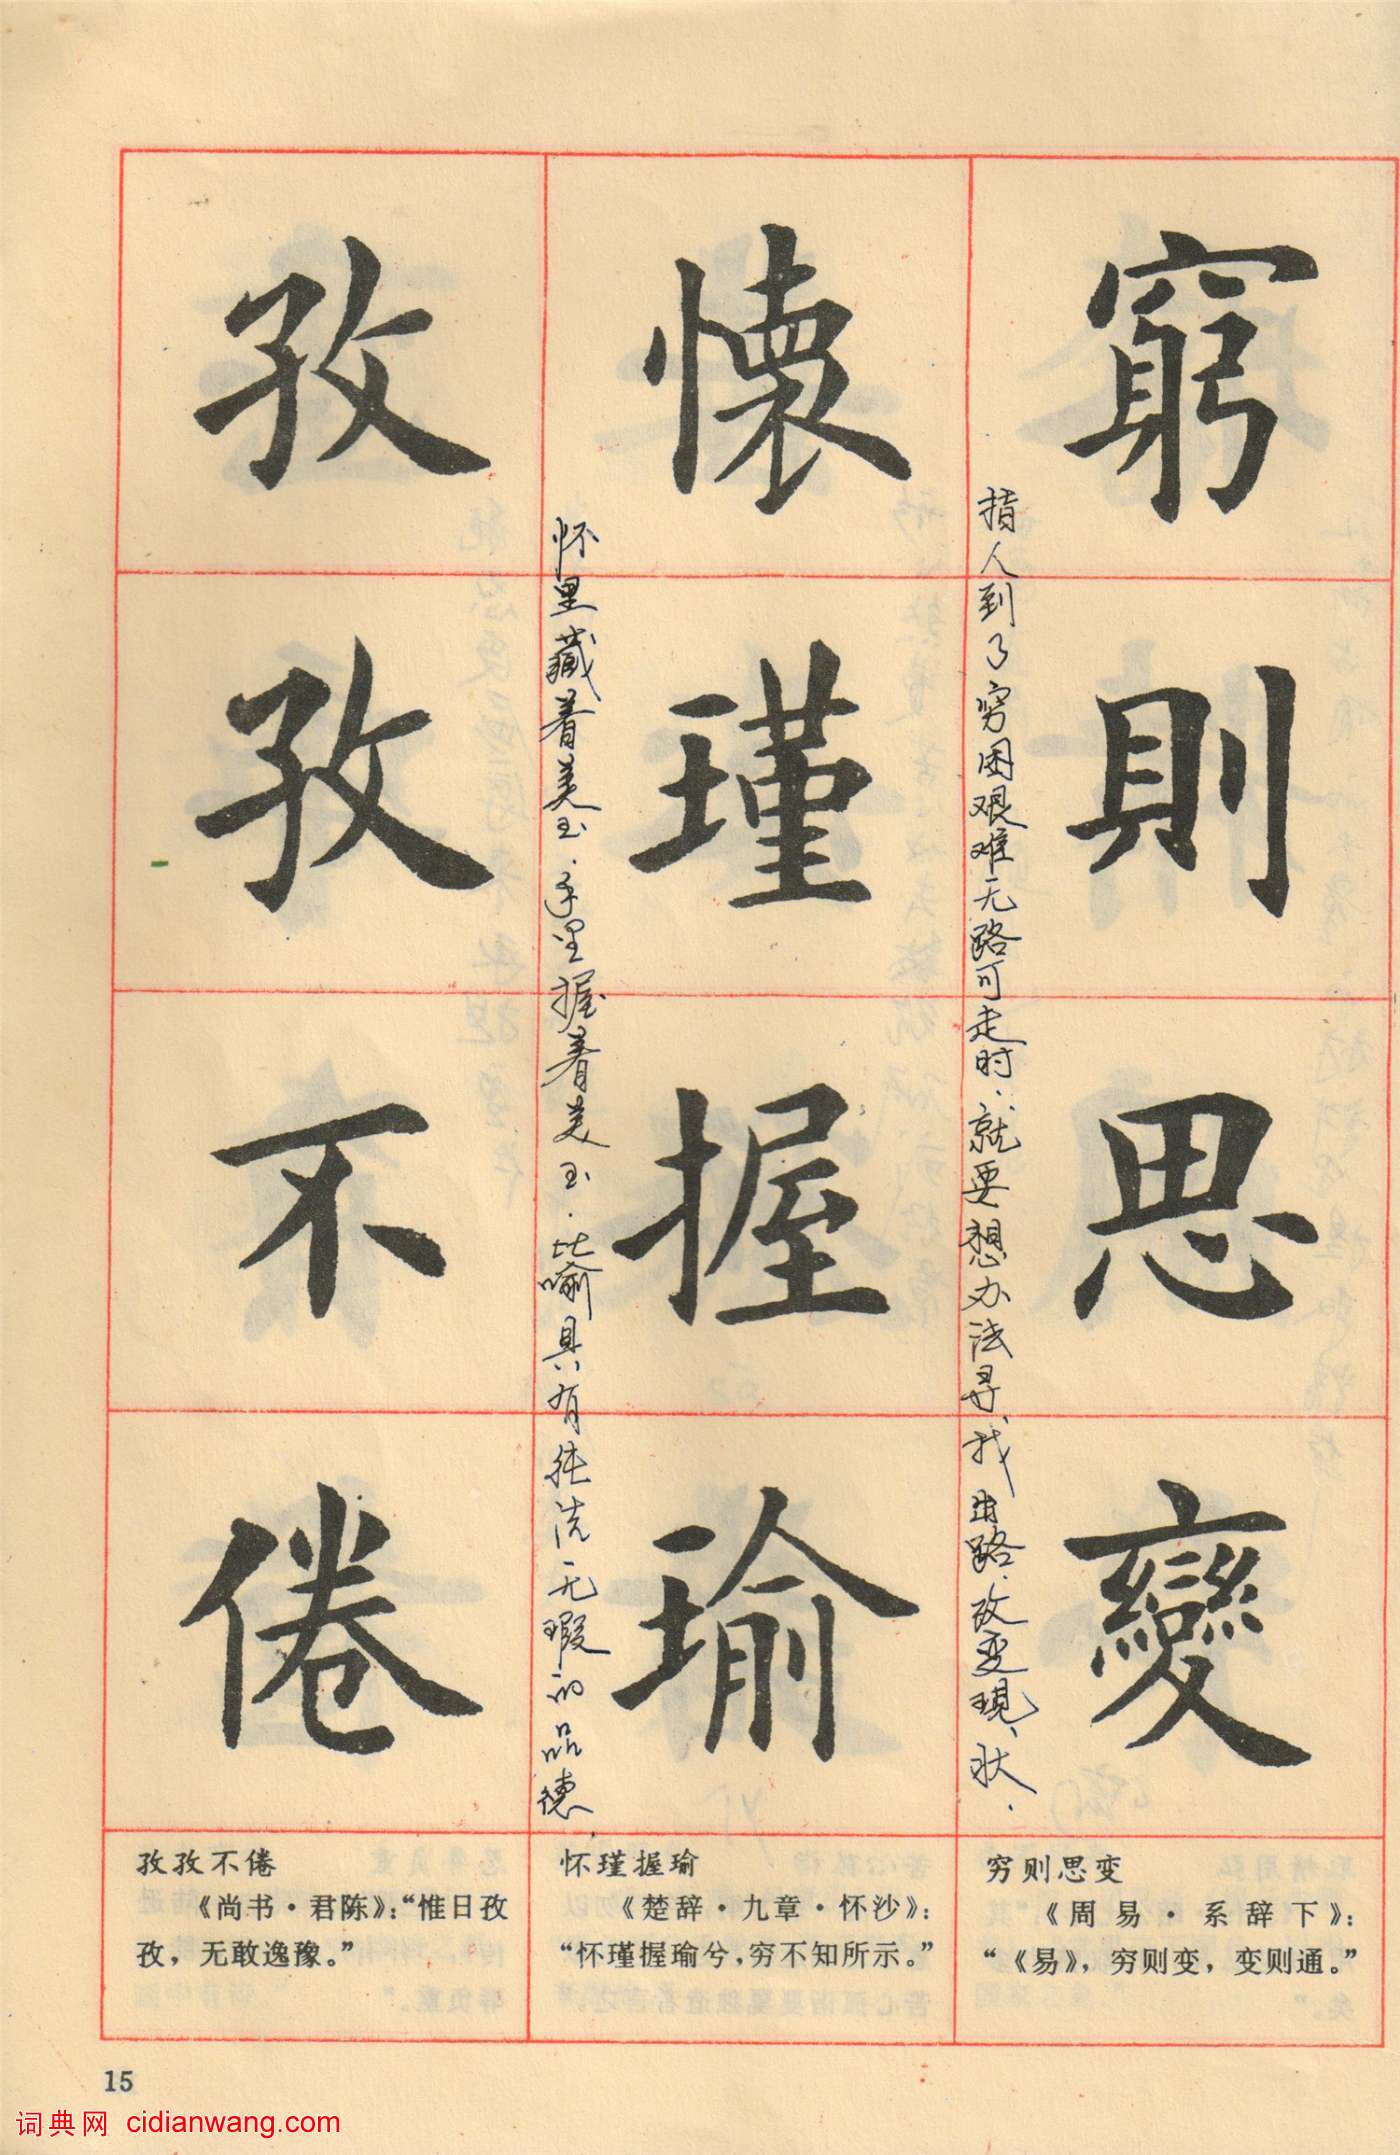 窮則思變
指人到了穷困艰难无路可走时.就要想办法寻找出路.改变现状.
懷瑾握瑜
怀里藏着美玉.手里握着美玉.比喻具有纯洁无瑕的品德.
孜孜不倦
穷则思变
《周易·系辞下》：
“《易》，穷则变，变则通。”
怀瑾握瑜
《楚辞·九章·怀沙》：
“怀瑾握瑜兮，穷不知所示。”
孜孜不倦
《尚书·君陈》：“惟日孜
孜，无敢逸豫。”
15
词典网 cidianwang.com